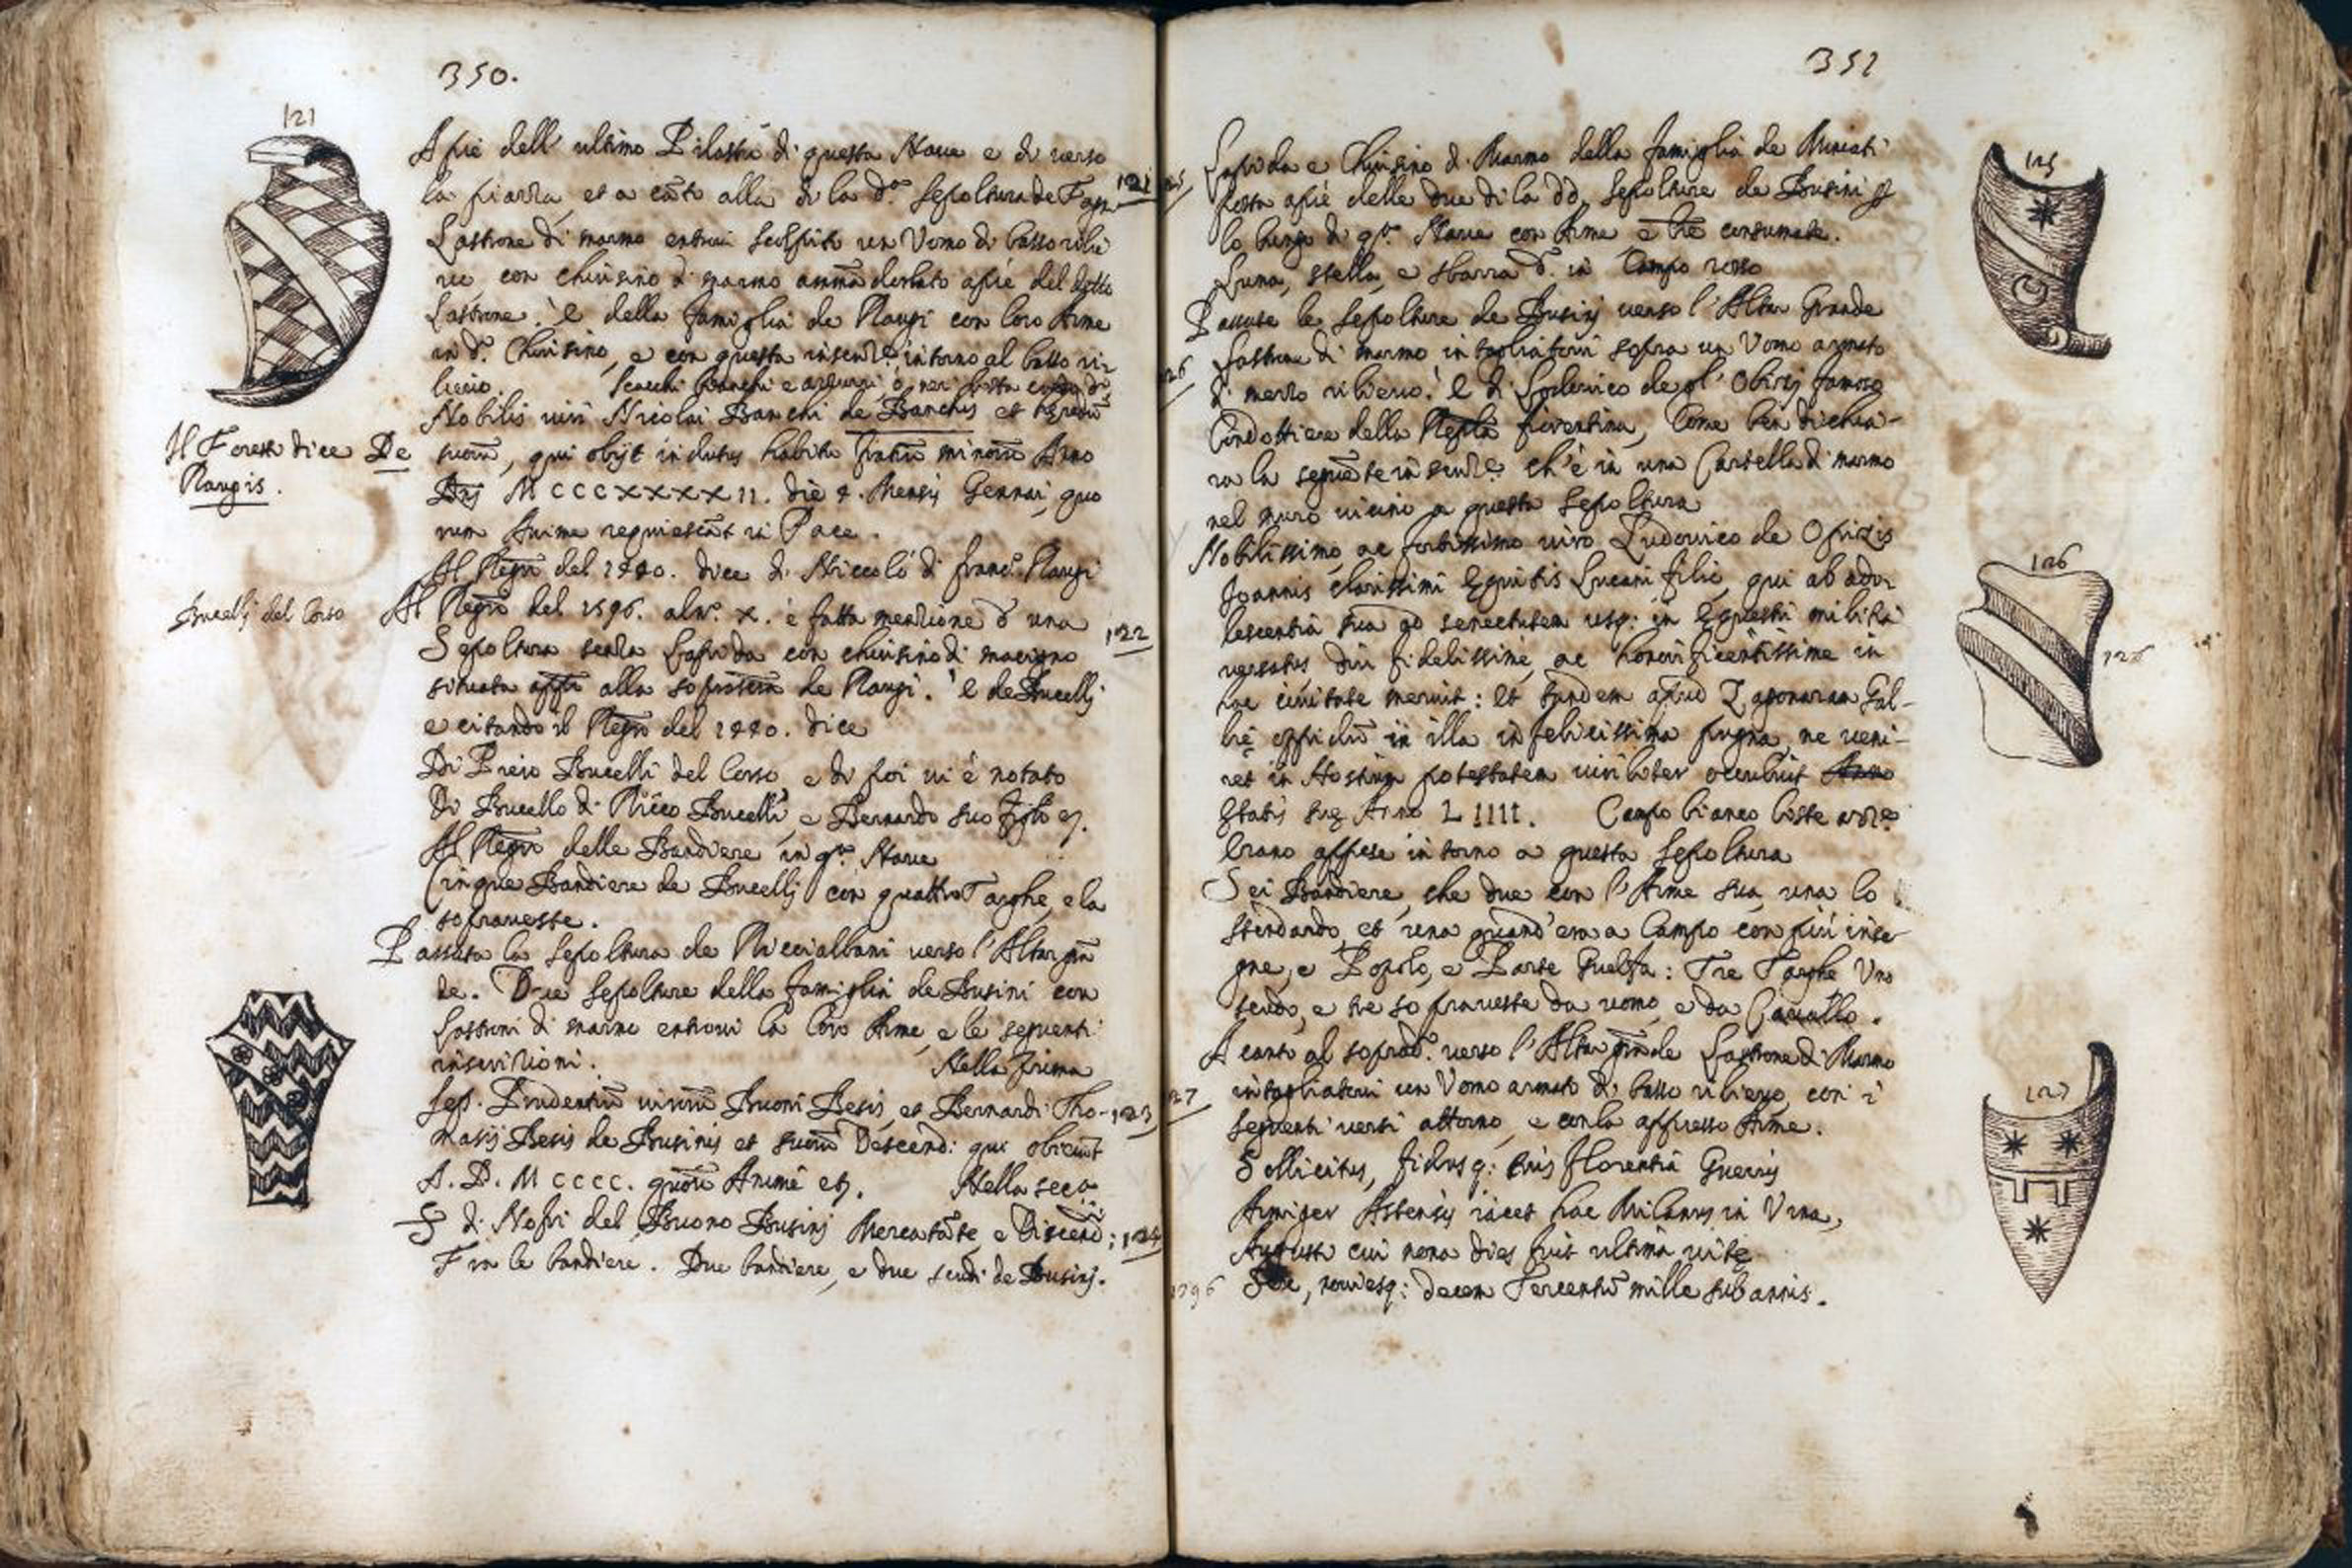 350.
121
Apiè dell' ultimo Pilastro di questa Nave e di verso
la piazza, et a cãto alla di la d.ª Sepoltura de 121
Lastrone di marmo entrovi scolpito un Uomo di basso rilie
vo, con chiusino di marmo ammãdorlato apiè del detto
Lastrone. È della famiglia de Raugi con loro Arme
in d.º Chiusino, e con questa inscriz.e intorno al basso ri-
lievo. Scacchi bianchi e azzurri, o neri
Nobilis viri Nicolai Banchi de Banchis et heredũ
suorũ, qui obijt indutus habitu fratrũ minorũ Anno
Dnj MCCCXXXXII. die 4. Mensis Gennari, quo
rum Anime requiescãt in Pace.
Il Foresti dice De
Raugis.
Al Regro del 1440. dice di Niccolò di Franc.º Raugi
Al Regro del 1596. al nº. X. è fatta menzione d'una
Bucelli del Corso
Sepoltura senza Lapida con chiusino di macigno 122
situata appo alla soprascra de Raugi. È de Bucelli
e citando il Regro del 1440. dice
Di Bucelli del Corso, e di poi vi è notato
Di Bucello di Bucelli, e Bernardo suo figlo
Al Regro delle Bandiere in q.ta Nave
Cinque Bandiere de Bucellj con quattro Targhe, e la
sopraveste.
Passata la Sepoltura de Riccialbani verso l'Altar grã
de. Due Sepolture della famiglia de Busini con
Lastroni di marmo entrovi la loro Arme, e le seguenti
inscrizioni. Nella prima
Sep. Prudentiũ virorũ Buoni Besis, et Bernardi Tho- 123
masij Besis de Businis et suorũ Descend: qui obierũt
A. D. MCCCC. quorũ Anime etc. Nella seco
S di Nofri del Buono Businj Mercatãte, e Discend; 124
Fra le bandiere. Due bandiere, e due scudi de Businj.
351
125
Lapida e Chiusino di Marmo della famiglia de Miniati
posta apiè delle due di la dd. Sepolture de Busini
lo lungo di q.ta Nave con Arme e consumate.
Luna, stella, e sbarra d. in Campo rosso
Passate le Sepolture de Businj verso l'Altar Grande
126 Lastrone di marmo intagliatovi sopra un Uomo armato
di mezzo rilievo. È di Lodovico de gl' Obizj famoso
Condottiere della Repla fiorentina, Come ben dichia-
ra la seguẽte inscriz.e ch'è in una Cartella di marmo
nel muro vicino a questa Sepoltura
126
Nobilissimo, ac fortissimo viro Ludovico de Opizis
Joannis clarissimi Equitis Lucani filio, qui ab ado-
lescentia sua ad senectutem usq: in Equestri militia
versatus, diu fidelissime, ac honorificẽtissime in
126
hac civitate meruit: et tandem apud Zagonaram Gal-
liẽ oppidũ in illa infelicissima pugna, ne veni-
ret in Hostium potestatem viriliter occubuit Anno
Etatis suę Anno LIIII. Campo bianco liste
Erano appese intorno a questa Sepoltura
Sei Bandiere, che due con l'Arme sua, una lo
stendardo, et una quand'era a Campo con più inse-
gne, e Popolo, e Parte Guelfa: Tre Targhe Uno
scudo, e tre sopraveste da uomo, e da Cavallo.
Acanto al soprad.º verso l'Altar grande Lastrone di Marmo
127 intagliatovi un Uomo armato di basso rilievo, con i
127
seguenti versi attorno, e con la appresso Arme.
Sollicitus, fidusq: tuis florentia Guerris
Armiger Astensis iacet hac Milanus in Urna,
Augusti cui nona dies fuit ultima vitę
1396 Sex, noviesq: decem Tercentũ mille sub annis.